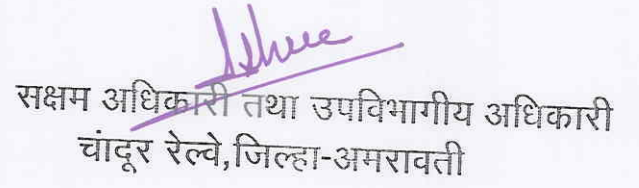 सक्षम अधिकारी तथा उपविभागीय अधिकारी
चांदूर रेल्वे,जिल्हा-अमरावती